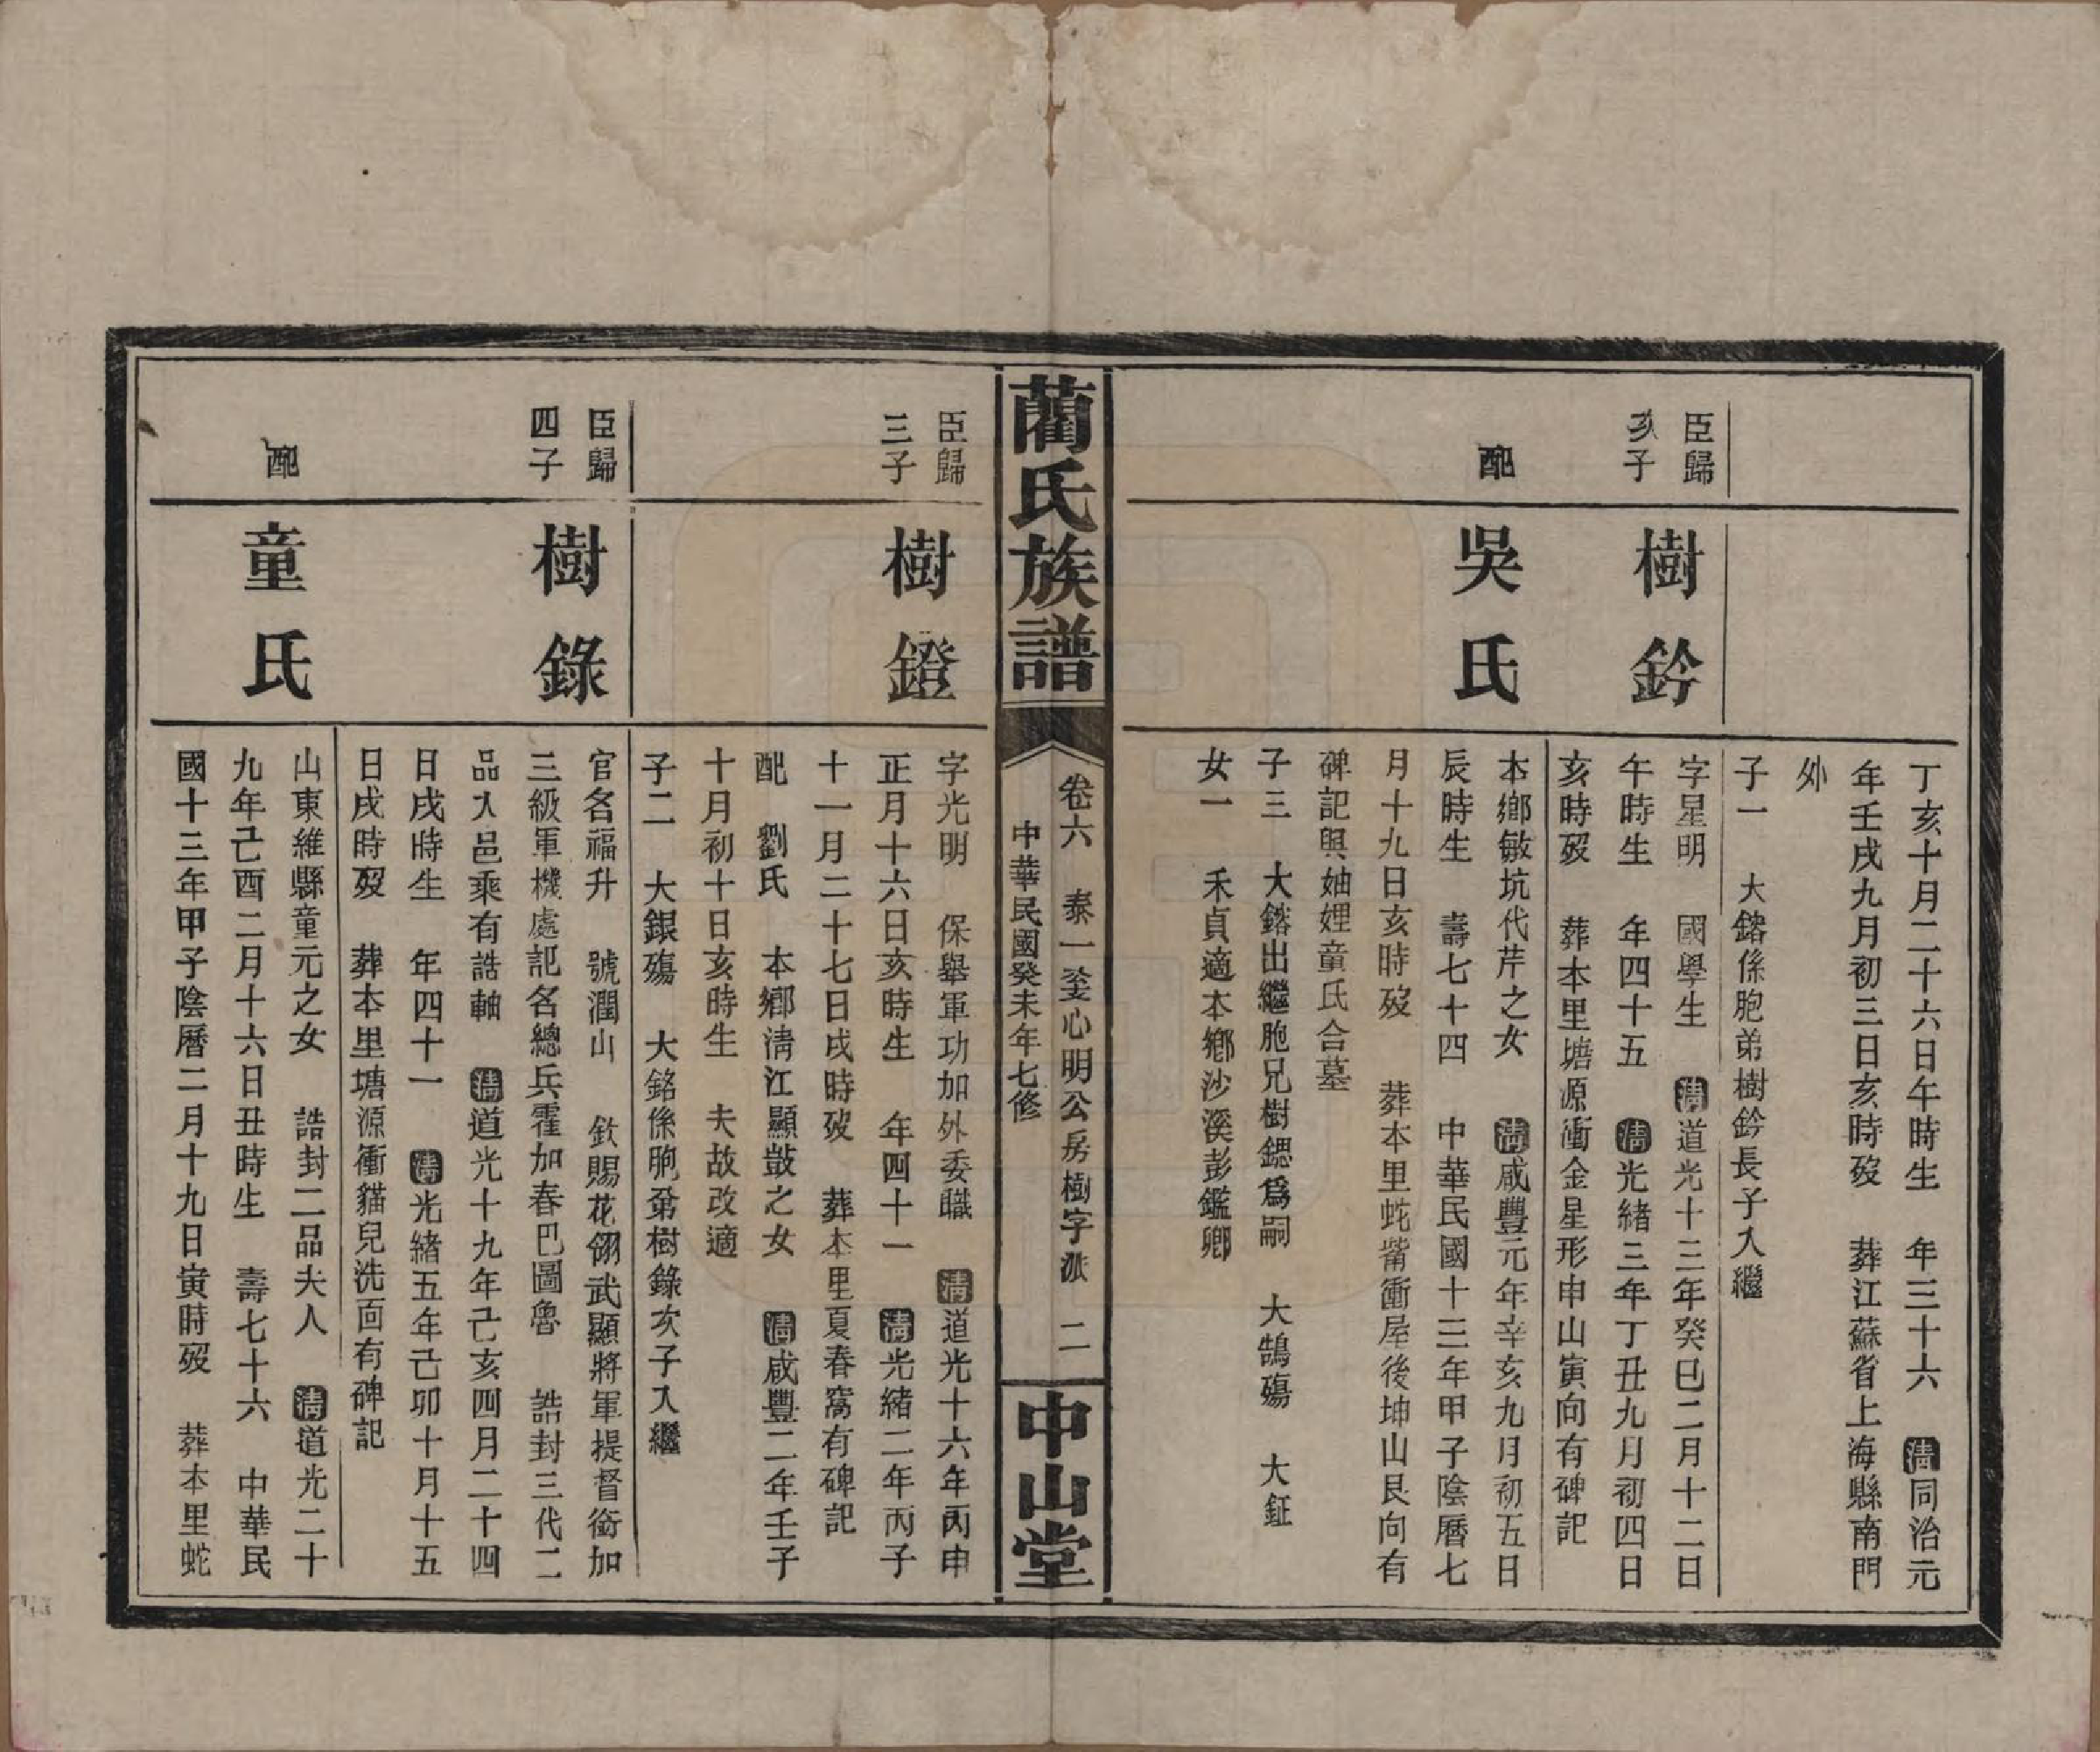 丁亥十月二十六日午時生　年三十六　清同治元
年壬戌九月初三日亥時歿　葬江蘇省上海縣南門
外
子一　大鎔係胞弟樹鈐長子入繼
臣歸
次子
樹鈐
字星明　國學生　清道光十三年癸巳二月十二日
午時生　年四十五　清光緒三年丁丑九月初四日
亥時歿　葬本里塘源衝金星形申山寅向有碑記
配
吳氏
本鄉敏坑代芹之女　清咸豐元年辛亥九月初五日
辰時生　壽七十四　中華民國十三年甲子陰曆七
月十九日亥時歿　葬本里蛇嘴衝屋後坤山艮向有
碑記與妯娌童氏合墓
子三　大鎔出繼胞兄樹鍶為嗣　大鵠殤　大鉦
女一　禾貞適本鄉沙溪彭鑑卿
藺氏族譜
卷六　泰一㚅心明公房樹字派　二
中華民國癸未年七修
中山堂
臣歸
三子
樹鐙
字光明　保舉軍功加外委職　清道光十六年丙申
正月十六日亥時生　年四十一　清光緒二年丙子
十一月二十七日戌時歿　葬本里夏春窩有碑記
配　劉氏　本鄉淸江顯鼓之女　清咸豐二年壬子
十月初十日亥時生　夫故改適
子二　大銀殤　大銘係胞弟樹錄次子入繼
臣歸
四子
樹錄
官名福升　號潤山　欽賜花翎武顯將軍提督銜加
三級軍機處記名總兵霍加春巴圖魯　誥封三代二
品入邑乘有誥軸　清道光十九年己亥四月二十四
日戌時生　年四十一　清光緒五年己卯十月十五
日戌時歿　葬本里塘源衝貓兒洗面有碑記
配
童氏
山東維縣童元之女　誥封二品夫人　清道光二十
九年己酉二月十六日丑時生　壽七十六　中華民
國十三年甲子陰曆二月十九日寅時歿　葬本里蛇